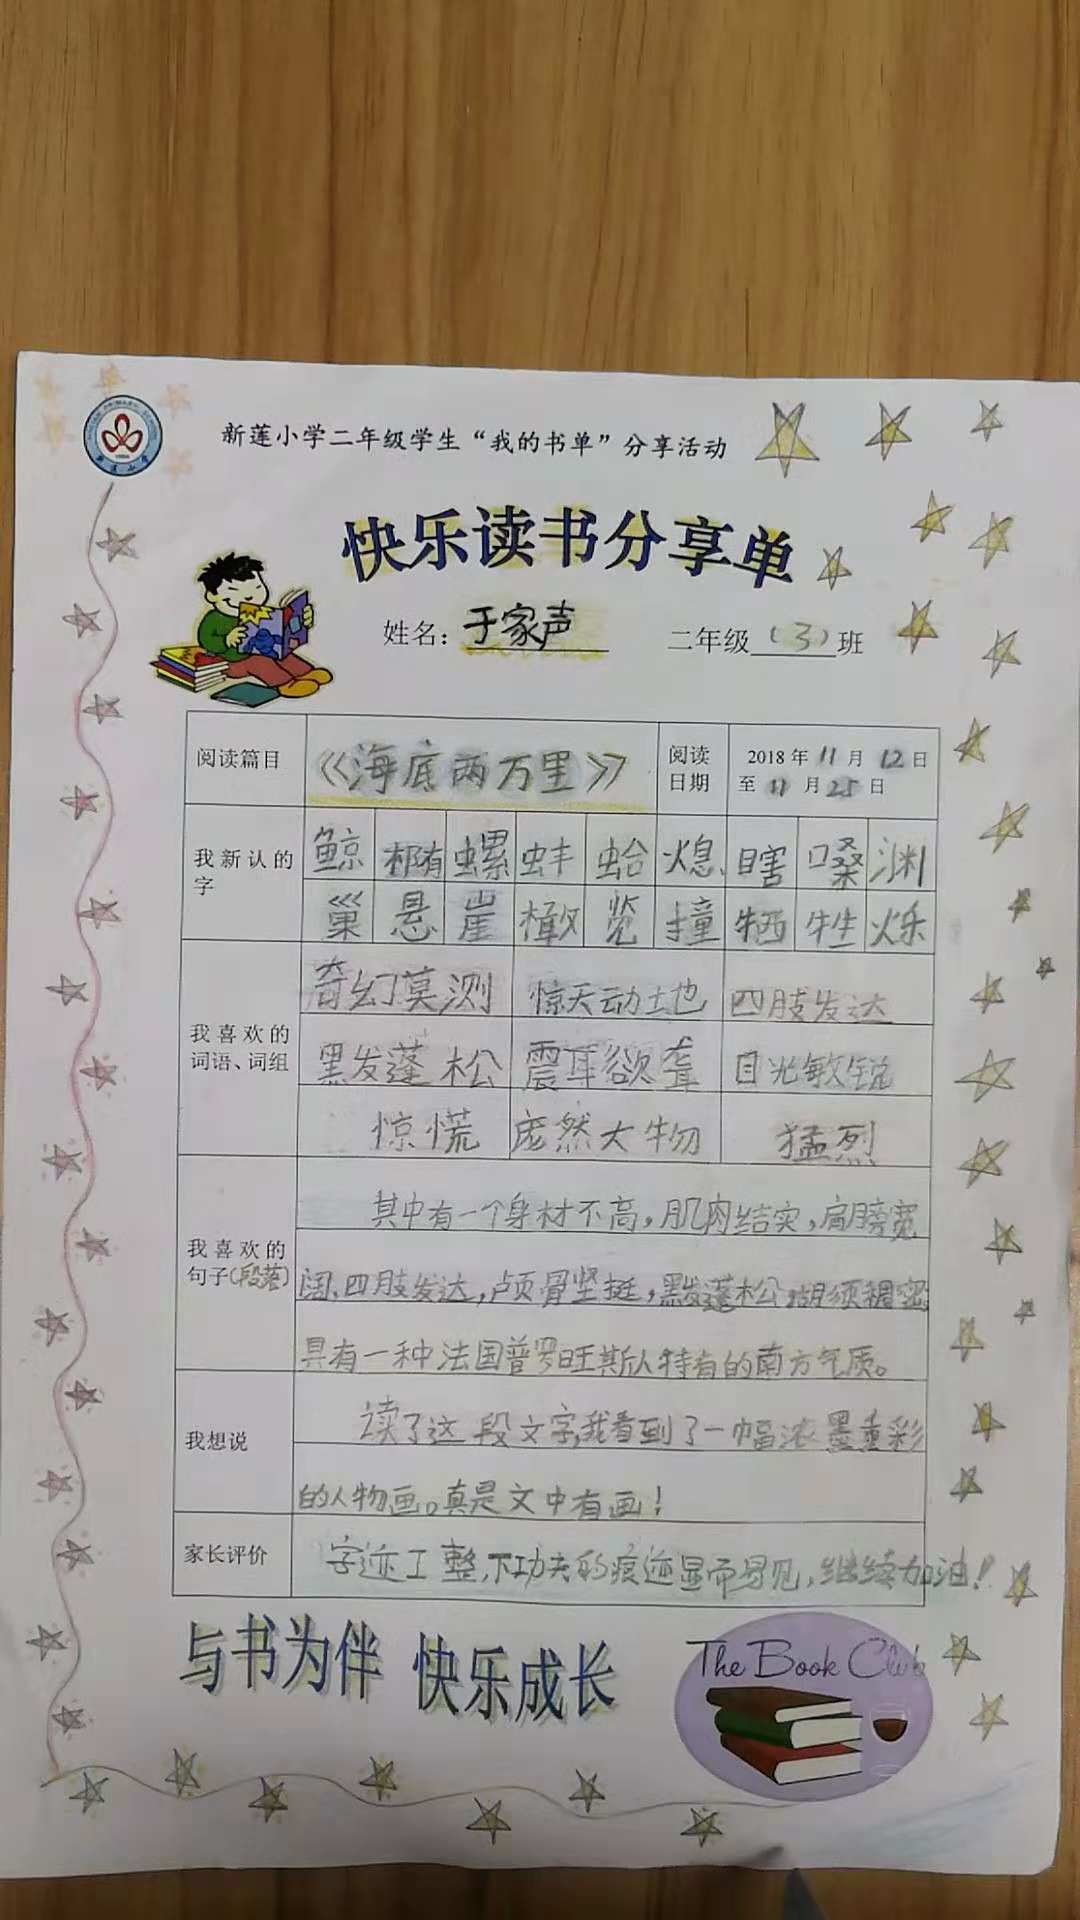 新莲小学二年级学生“我的书单”分享活动
快乐读书分享单
姓名：于家声 二年级（3）班
阅读篇目 《海底两万里》 阅读日期 2018年11月12日至11月25日
我新认的字
鲸 螺 蚌 蛤 熄 瞎 嗓 渊
巢 悬 崖 橄 览 撞 牺 牲 烁
我喜欢的词语、词组
奇幻莫测 惊天动地 四肢发达
黑发蓬松 震耳欲聋 目光敏锐
惊慌 庞然大物 猛烈
我喜欢的句子(段落)
其中有一个身材不高，肌肉结实，肩膀宽
阔、四肢发达，颅骨坚挺，黑发蓬松，胡须稠密
具有一种法国普罗旺斯人特有的南方气质。
我想说
读了这段文字，我看到了一幅浓墨重彩
的人物画。真是文中有画！
家长评价 字迹工整，下功夫的痕迹显而易见，继续加油！
与书为伴 快乐成长
The Book Club